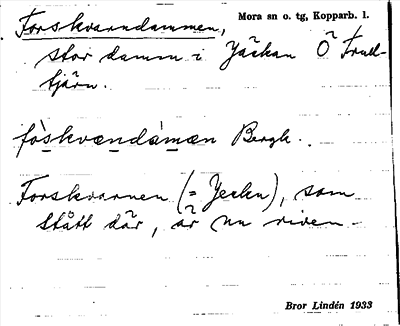 Forskvarndammen, Mora sn o. tg, Kopparb. l.
stor damm i Yäckan Ö Trull-
tjärn.
fòskvændàmæn Bergk.
Forskvarnen (= Yeckn), som
stått där, är nu riven
Bror Lindén 1933